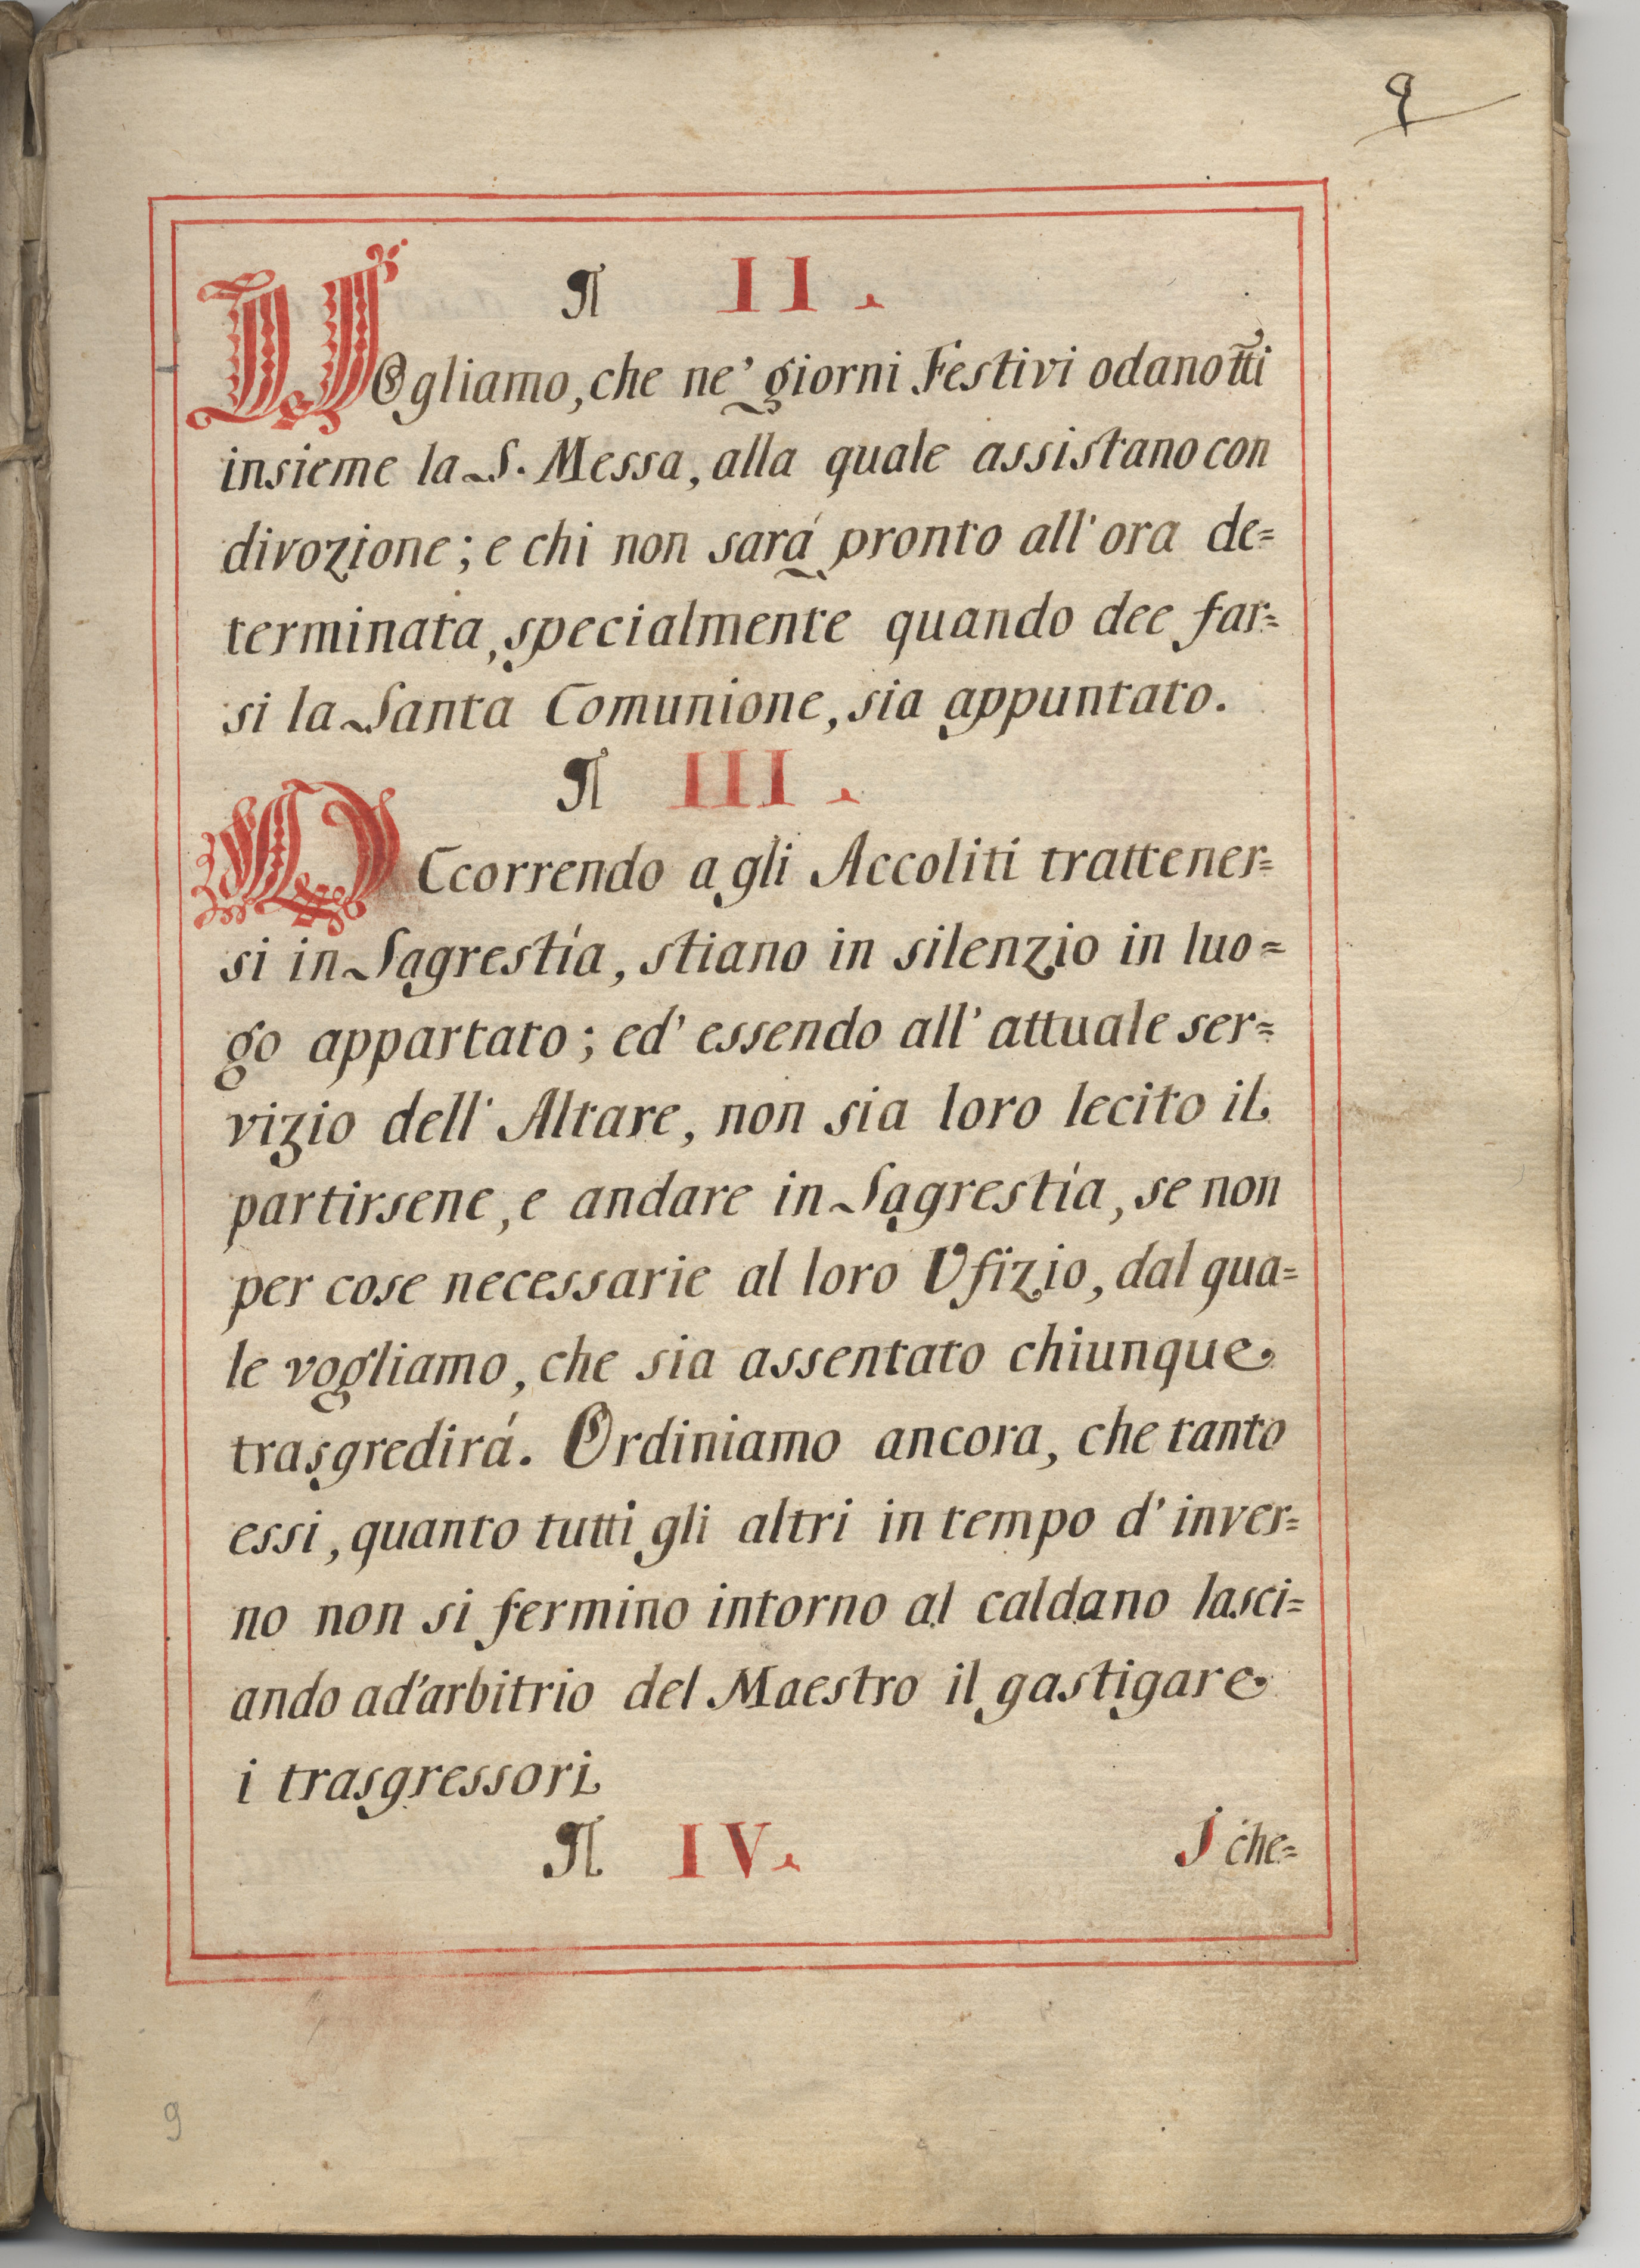 9
¶ II.
VOgliamo, che ne' giorni Festivi odano tt̃i
insieme la S. Messa, alla quale assistano con
divozione; e chi non sará pronto all'ora de=
terminata, specialmente quando dee far=
si la Santa Comunione, sia appuntato.
¶ III.
OCcorrendo agli Accoliti trattener=
si in Sagrestía, stiano in silenzio in luo=
go appartato; ed' essendo all' attuale ser=
vizio dell' Altare, non sia loro lecito il
partirsene, e andare in Sagrestía, se non
per cose necessarie al loro Ufizio, dal qua=
le vogliamo, che sia assentato chiunque
trasgredirá. Ordiniamo ancora, che tanto
essi, quanto tutti gli altri in tempo d' inver=
no non si fermino intorno al caldano lasci=
ando ad'arbitrio del Maestro il gastigare
i trasgressori
¶ IV.
I che=
9